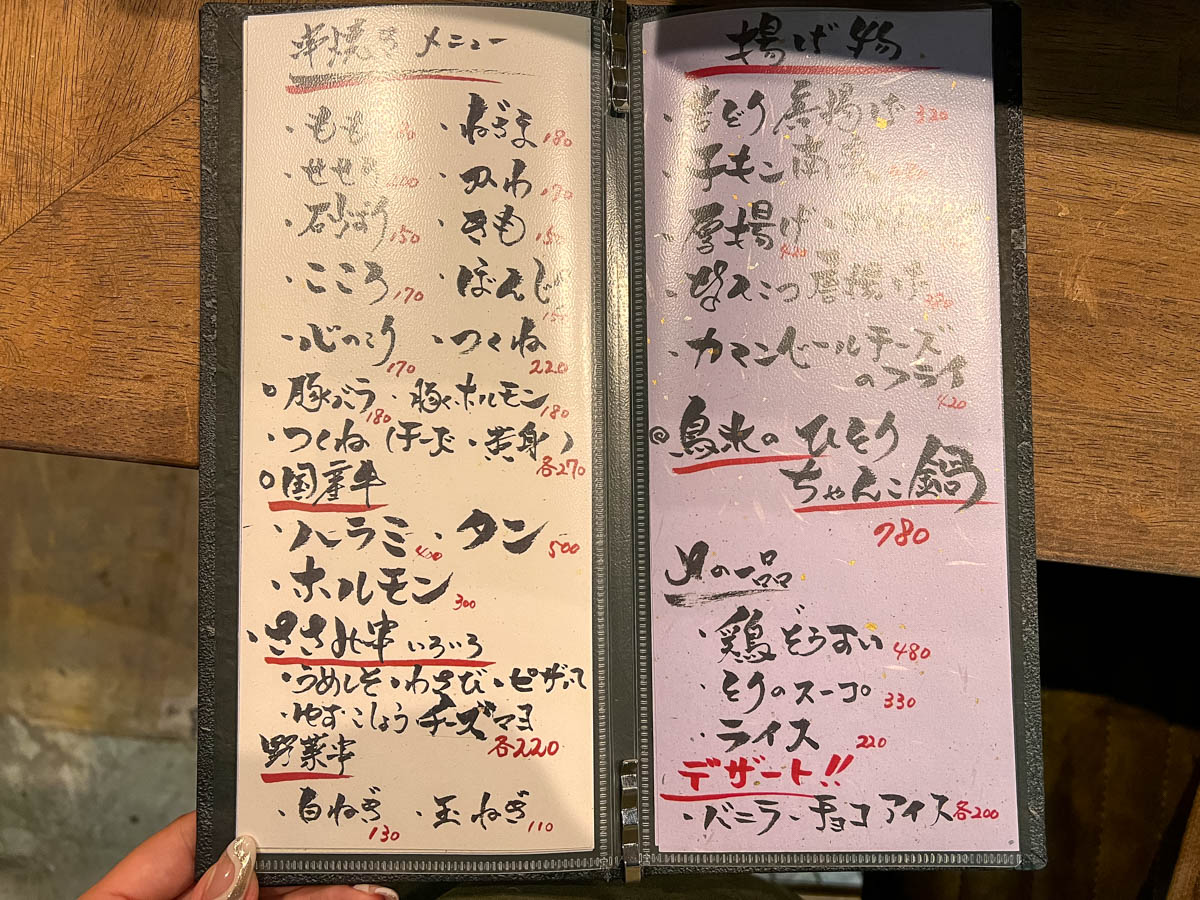 串焼きメニュー
・もも 180 ・ねぎま 180
・せせり 200 ・かわ 170
・砂ずり 150 ・きも 150
・こころ 170 ・ぼんじり 150
・心のこり 170 ・つくね 220
○豚バラ 180 ・豚ホルモン 180
・つくね(チーズ・黄身) 各270
○国産牛
・ハラミ 400 ・タン 500
・ホルモン 300
・ささみ串 いろいろ
・うめしそ・わさび・ピザソース
・ゆずこしょう チーズマヨ
各220
野菜串
・白ねぎ 130 ・玉ねぎ 110
揚げ物
唐揚げ 320
・チキン南蛮
・厚揚げ 420
・なんこつ唐揚げ
・カマンベールチーズ
のフライ 420
◎鳥末の ひとり
ちゃんこ鍋
780
〆の一品
・鶏ぞうすい 480
・とりのスープ 330
・ライス 220
デザート!!
・バニラ・チョコアイス 各200